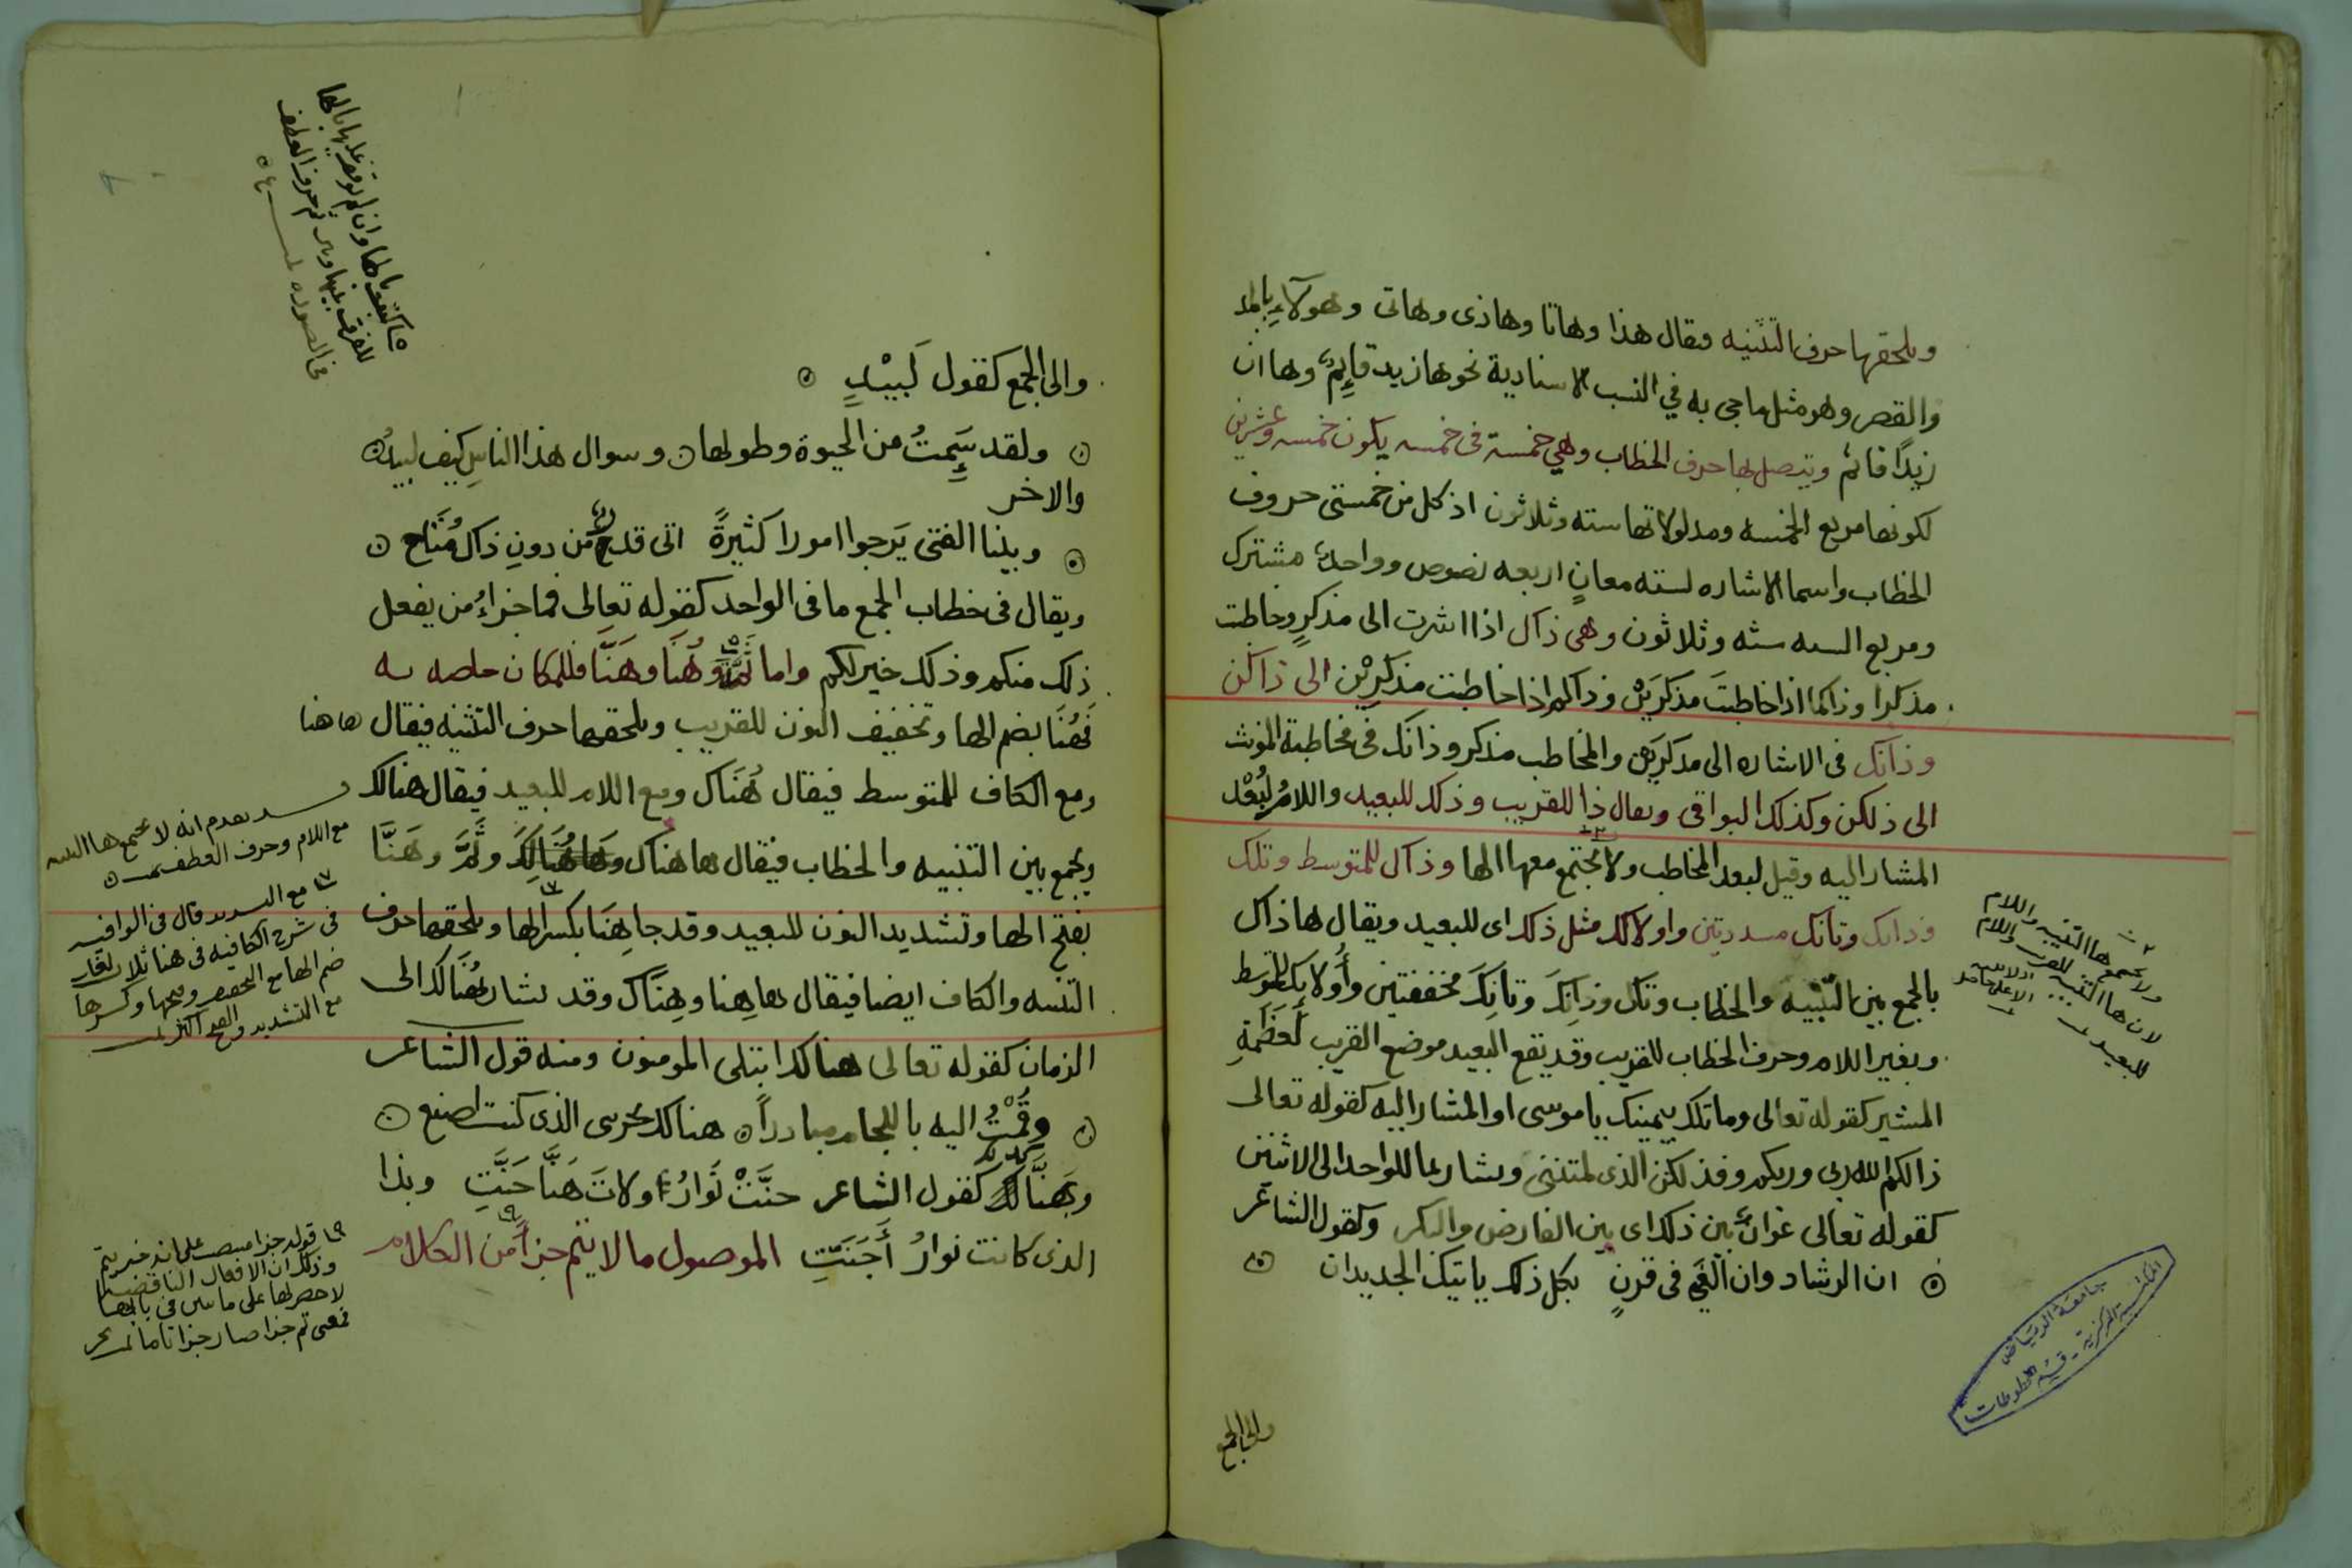 ويلحقها حرف التنبيه فقال هذا وهاتا وهاذى وهاتى وهولآءِ بالمد
والقصر وهو مثل ما جى به في النسب الاسنادية نحوها زيد قايمٌ وها ان
زيدًا قائم ويتصل بها حرف الخطاب وهي خمسة فى خمسه يكون خمسه وعشرين
لكونها مربع الخمسه ومدلولاتها سته وثلاثون اذ كل من خمستى حروف
الخطاب واسما الاشاره لسته معانٍ اربعه نصوص وواحدٌ مشترك
ومربع السته سته وثلاثون وهى ذاك اذا اشرت الى مذكرٍ وخاطبت
مذكرا وذاكما اذا خاطبتَ مذكرَيْن وذاكم اذا خاطبت مذكرِيْن الى ذاكن
وذانك فى الاشاره الى مذكرَين والمخاطب مذكر وذانك فى مخاطبة المونث
الى ذلكن وكذلك البواقى ويقال ذا للقريب وذلك للبعيد واللامُ لبُعْد
المشار اليه وقيل لبعد المخاطب ولا يجتمع معها الها وذاك للمتوسط وتلك
وذانك وتانك مشددتين واولالك مثل ذلك اى للبعيد ويقال هاذاك
بالجمع بين التنبيه والخطاب وتاك وذانِكَ وتانِكَ مخففتين وأُولايك للمتوسط
وبغير اللام وحرف الخطاب للقريب وقد تقع البعيد موضع القريب لعَظَمَةِ
المشير كقوله تعالى وما تلك بيمينك ياموسى او المشار اليه كقوله تعالى
ذالكم الله ربى وربكم وفذلكن الذى لمتننى ويشار بما للواحد الى الاثنين
كقوله تعالى عوانٌ بين ذلك اى بين الفارض والبكر وكقول الشاعر
ان الرشاد وان الغَيَّ فى قرنٍ بكل ذلك ياتيك الجديدان
والى الجمع
ولا يجتمع ها التنبيه واللام
لان ها التنبيه للقرب واللام
للبعيد
جامعة الرياض
المكتبة المركزية - قسم المخطوطات
والى الجمع كقول لَبيْدٍ
ولقد سَيِمتُ من الحيوة وطولها وسوال هذا الناسِ كيف لبيدُ
والاخر
وبينا الفتى يَرجوا امورا كثيرةً اتى قدرٌ من دونِ ذاك مُتَاح
ويقال فى خطاب الجمع ما فى الواحد كقوله تعالى فما جزاءُ من يفعل
ذلك منكم وذلك خير لكم واما ثَمَّ وهُنَا وهَنَّا فللمكان خاصه
فَهُنَا بضم الها وتخفيف النون للقريب ويلحقها حرف التنبيه فيقال هاهنا
ومع الكاف للمتوسط فيقال هُنَاك ومع اللام للبعيد فيقال هنالك
ويجمع بين التنبيه والخطاب فيقال هاهناك وهاهُنَالِكَ وثَمَّ وهَنَّا
بفتح الها وتشديد النون للبعيد وقد جا هِنَا بكسر الها ويلحقها حرف
التنبيه والكاف ايضا فيقال هاهِنا وهِنَّاك وقد يشار بهُنَالك الى
الزمان كقوله تعالى هنالك ابتلى المومنون ومنه قول الشاعر
وقُمْتُ اليه باللجام مبادراً هنالك يجزى الذى كنت اصنع
وبهَنَّا كقول الشاعر حنَّتْ نَوَارُ ولاتَ هَنَّا حَنَّتِ وبذا
الذى كانت نوارُ أَجَنَتِّ الموصول مالا يتم جزأً من الكلام
تقدم انه لا يجتمع ها التنبيه
مع اللام وحرف العطف
مع التشديد قال فى الوافيه
فى شرح الكافيه فى هنا ثلاث لغات
ضم الها مع التخفيف وفتحها وكسرها
مع التشديد والفتح اكثر
قوله جزا منصوب على انه خبر يتم
وذلك ان الافعال الناقصه
لا حصر لها على ما يبين فى بابها
فمعنى تم جزا صار جزا تاما